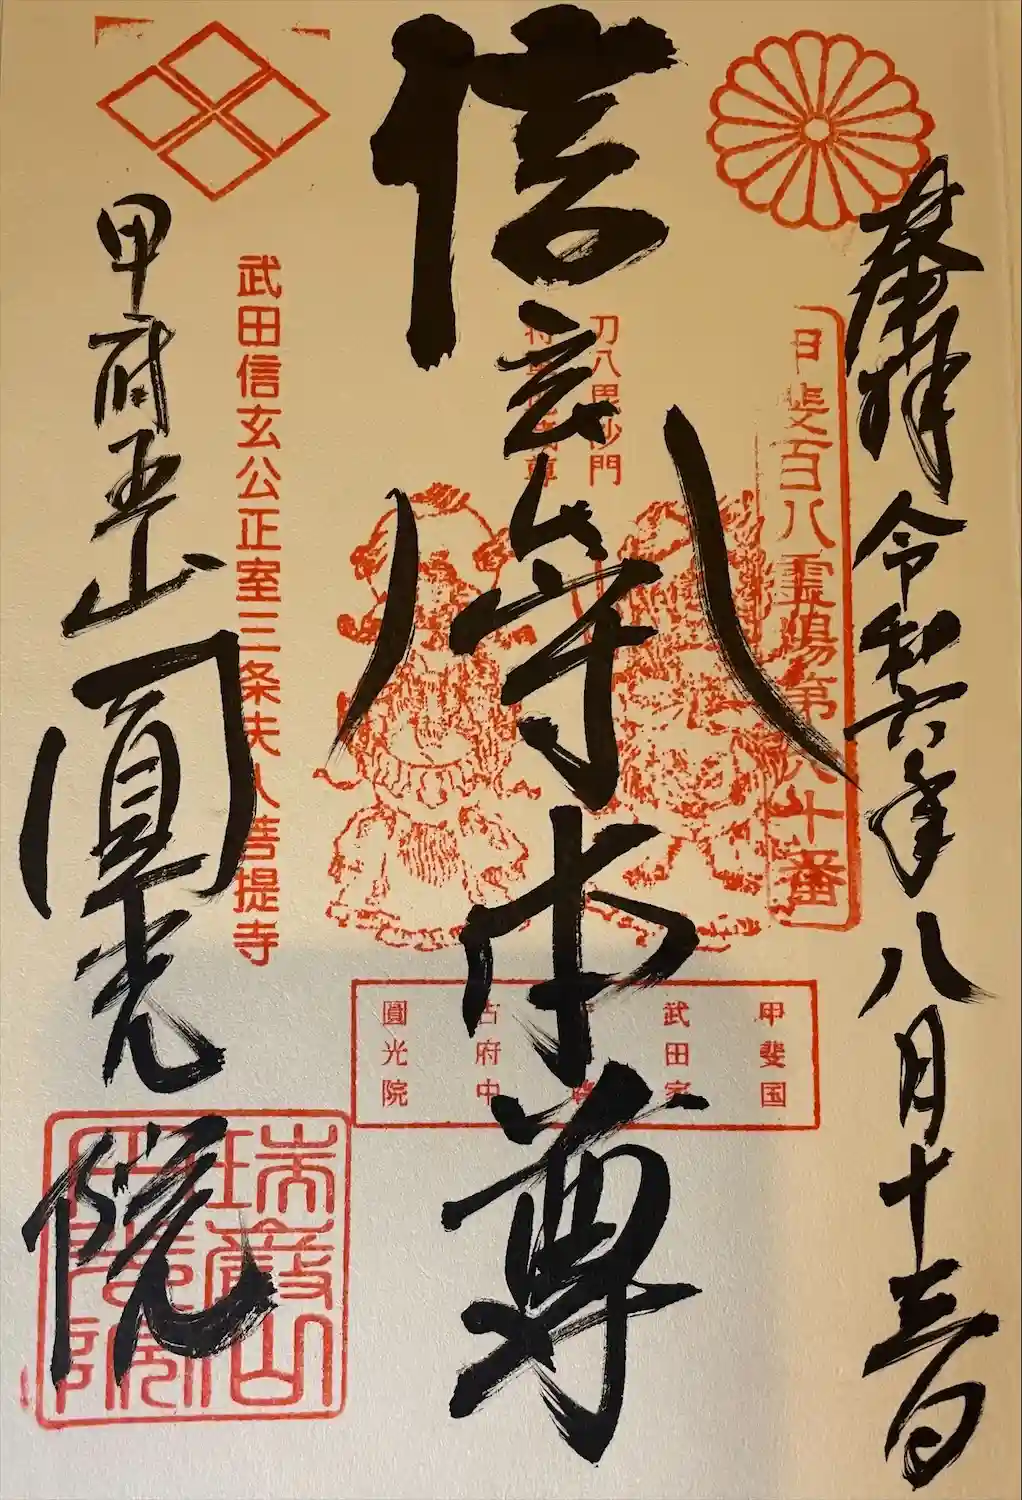 奉拝 令和六年八月十三日
甲斐百八霊場第六十番
刀八毘沙門
信玄公守り本尊
甲斐国
武田家
府中
圓光院
武田信玄公正室三条夫人菩提寺
甲府五山 圓光院
瑞巌山
圓光院